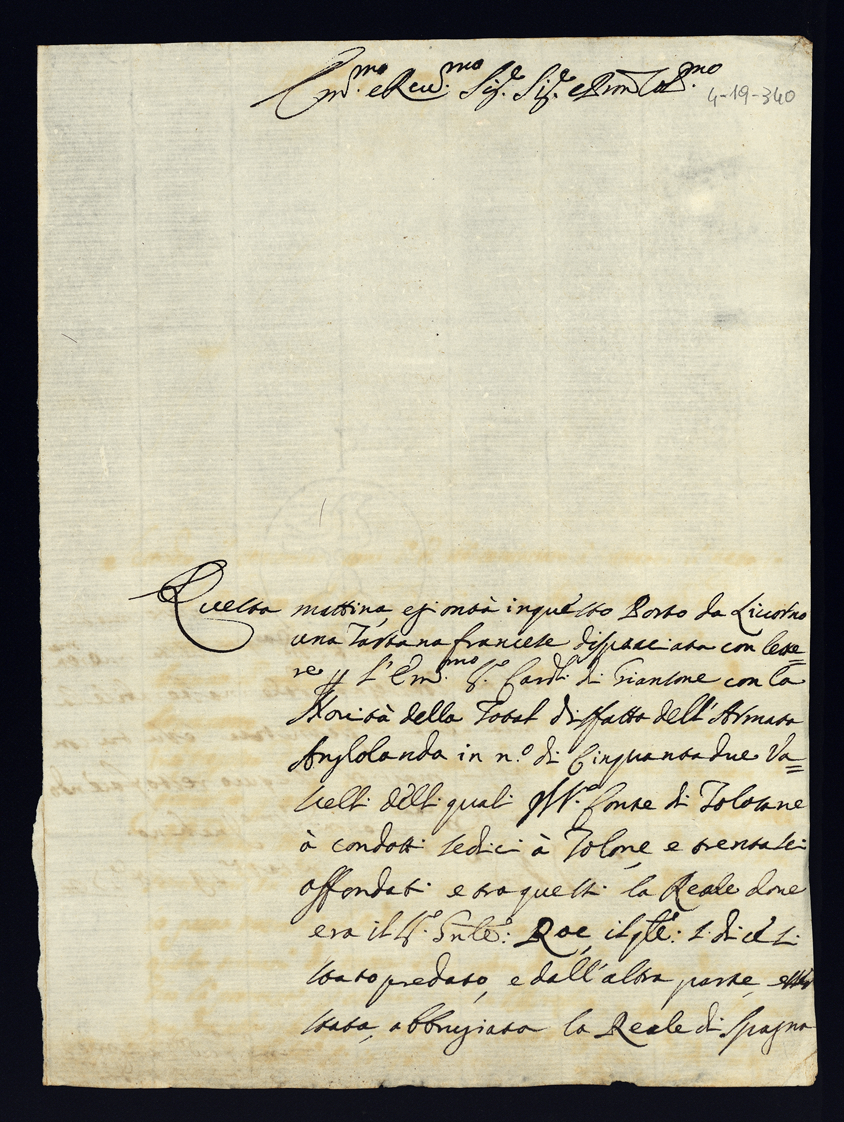 Em.mo e Reu.mo Sig.r Sig.r e Pron Col.mo
4-19-340
Questa mattina, e gionta in questo Porto da Liuorno
una Tartana francese dispacciata con lette=
re p l'Em.mo S.r Card. di Gianson con la
Nouità della Total disfatta dell'Armata
Anglolanda in n.o di Cinquantadue Va=
selli delli quali Conte di Tolosane
à condotti sedici à Tolone e trentasei
affondati e tra questi la Reale doue
era il S.r Gnle: Roc, il qle: si dice si
stato predato, e dall'altra parte
stata, abbrugiata la Reale di Spagna